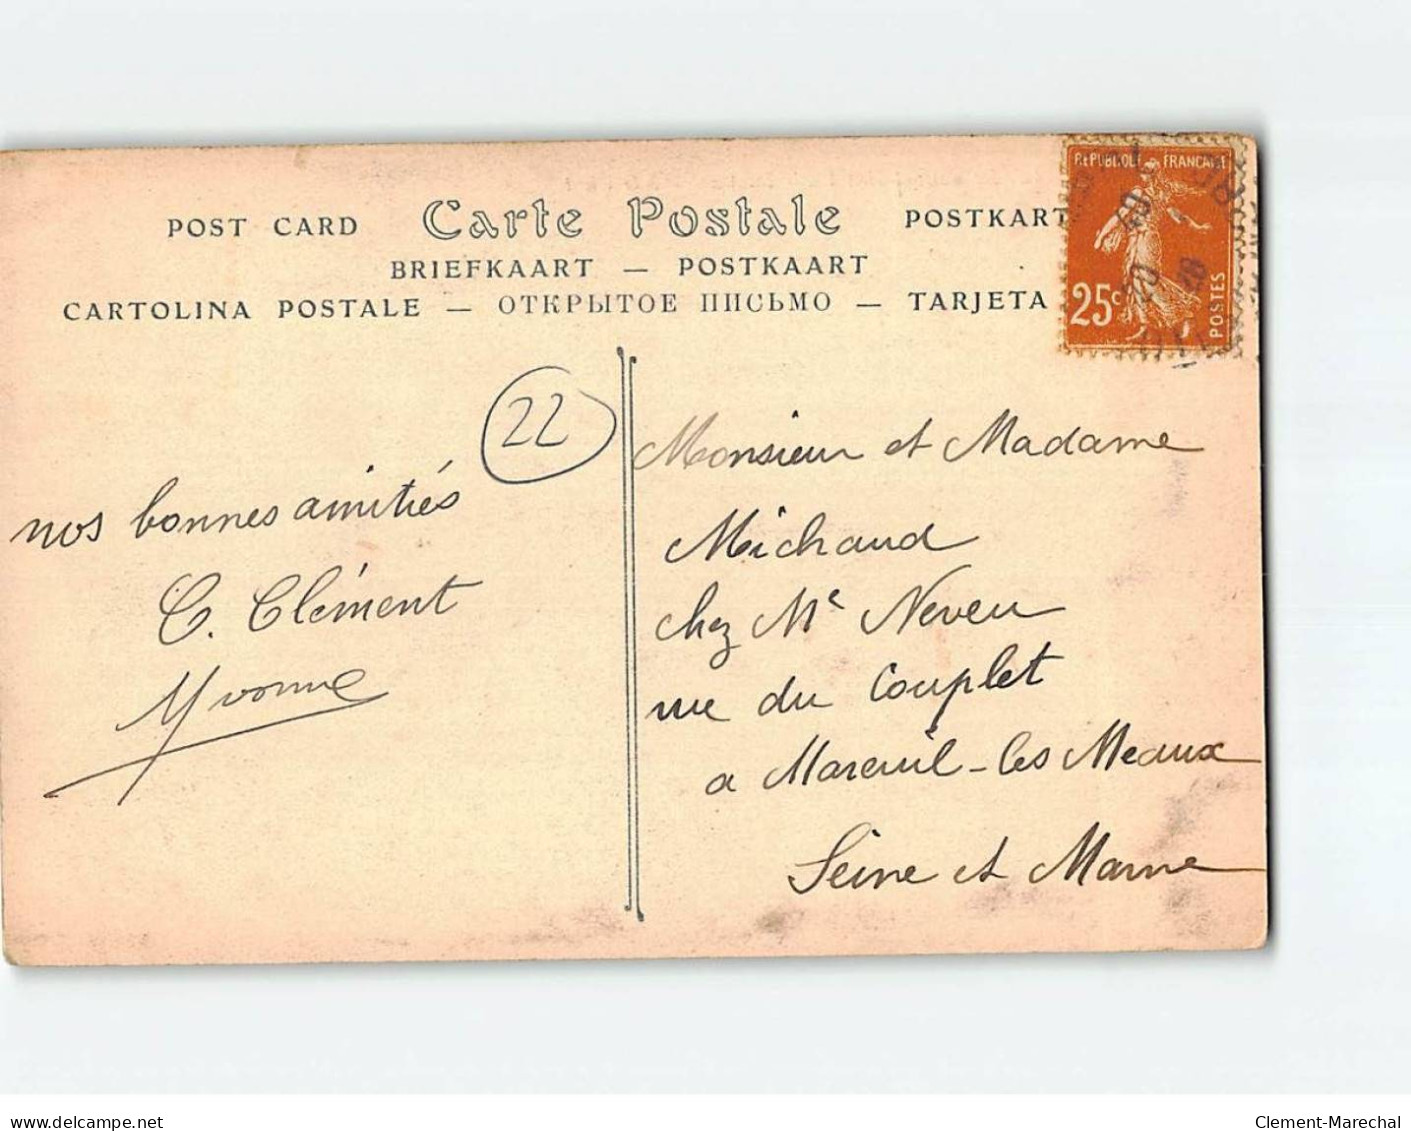 POST CARD Carte Postale POSTKART
BRIEFKAART — POSTKAART
CARTOLINA POSTALE — ОТКРЫТОЕ ПИСЬМО — TARJETA
REPUBLIQUE FRANCAISE
25c
POSTES
22
nos bonnes amitiés
C. Clément
Yvonne
Monsieur et Madame
Michaud
chez Me Neveu
rue du Couplet
a Mareuil-les Meaux
Seine et Marne
delcampe.net
Clement-Marechal